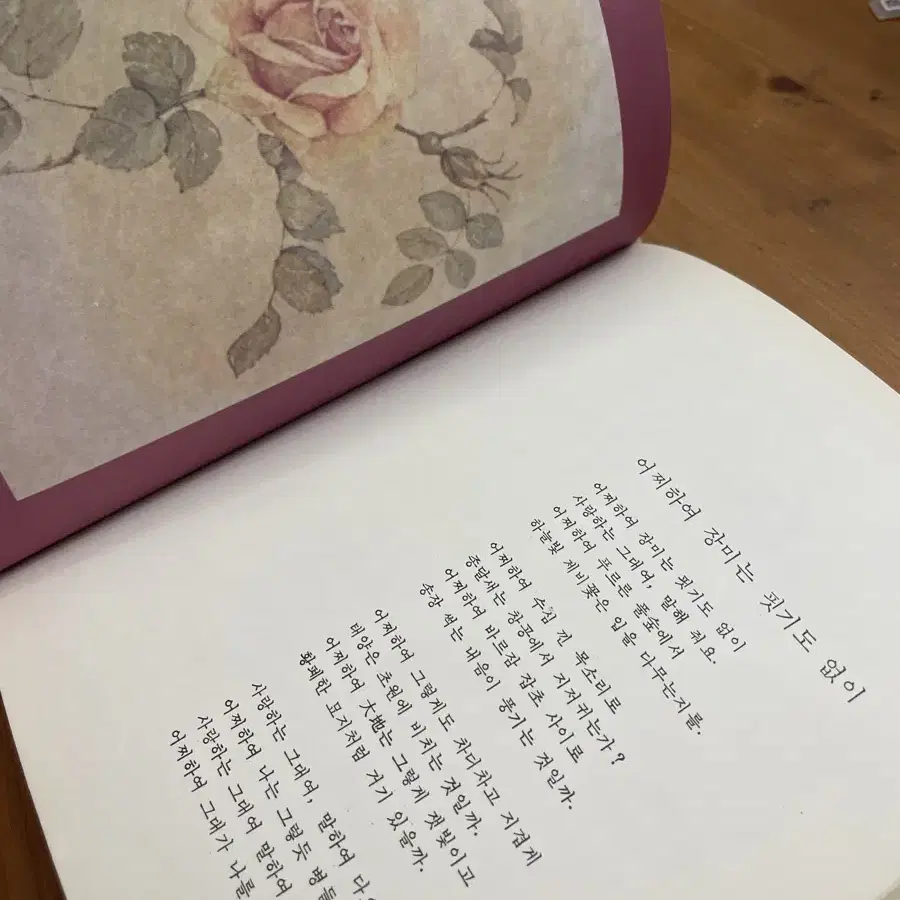 어찌하여 장미는 핏기도 없이
어찌하여 장미는 핏기도 없이
사랑하는 그대여, 말해 줘요.
어찌하여 푸르른 풀숲에서
하늘빛 제비꽃은 입을 다무는지를.
어찌하여 수심 낀 목소리로
종달새는 창공에서 지저귀는가?
어찌하여 바르잠 잡초 사이로
송장 썩는 내음이 풍기는 것일까.
어찌하여 그렇게도 차디차고 지겹게
태양은 초원에 비치는 것일까.
어찌하여 大地는 그렇게 잿빛이고
황폐한 묘지처럼 거기 있을까.
사랑하는 그대여, 말하여
어찌하여 나는 그렇듯 병들
사랑하는 그대여 말하여
어찌하여 그대가 나를